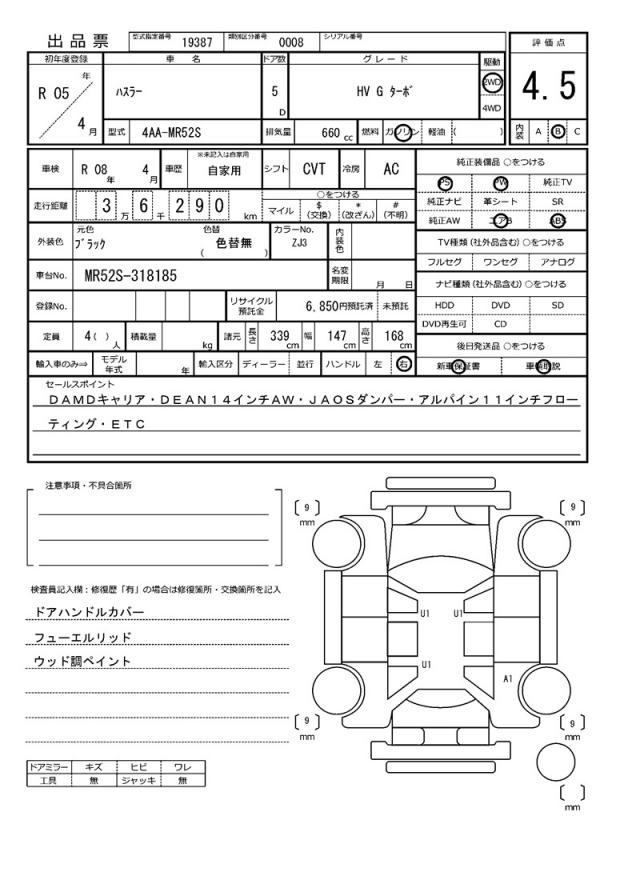 出品票 型式指定番号 19387 類別区分番号 0008 シリアル番号
評価点
4.5
内装 A B C
初年度登録 車名 ドア数 グレード 駆動
R 05 年 4 月
ハスラー 5 D HV G ターボ 2WD 4WD
型式 4AA-MR52S 排気量 660 cc 燃料 ガソリン 軽油 ( )
車検 R 08 年 4 月 車歴 ※未記入は自家用 自家用 シフト CVT 冷房 AC
走行距離 3 万 6 千 2 9 0 km
○をつける
マイル $(交換) *(改ざん) #(不明)
外装色 元色 ブラック 色替 色替無 ( ) カラーNo. ZJ3 内装色
車台No. MR52S-318185 名変期限 月 日
登録No. リサイクル預託金 6,850円預託済 未預託
定員 4( )人 積載量 kg 諸元 長さ 339 cm 幅 147 cm 高さ 168 cm
輸入車のみ⇒ モデル年式 年 輸入区分 ディーラー 並行 ハンドル 左 右
純正装備品 ○をつける
PS PW 純正TV
純正ナビ 革シート SR
純正AW エアB ABS
TV種類(社外品含む)○をつける
フルセグ ワンセグ アナログ
ナビ種類(社外品含む)○をつける
HDD DVD SD
DVD再生可 CD
後日発送品 ○をつける
新車保証書 車輌取説
セールスポイント
DAMDキャリア・DEAN14インチAW・JAOSダンパー・アルパイン11インチフロー
ティング・ETC
注意事項・不具合箇所
検査員記入欄:修復歴「有」の場合は修復箇所・交換箇所を記入
ドアハンドルカバー
フューエルリッド
ウッド調ペイント
ドアミラー キズ ヒビ ワレ
工具 無 ジャッキ 無
[9] mm
[9] mm
U1 U1
U1
A1
[9] mm
[9] mm
[ ] mm